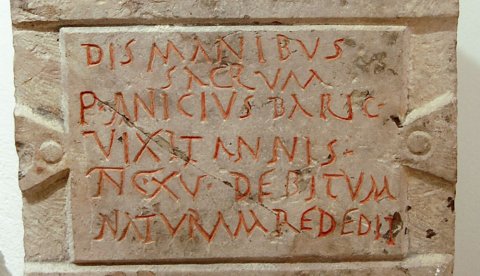 DIS MANIBVS
SACRVM
P ANICIVS
VIXIT ANNIS
DEBITVM
NATVRAM REDEDIT